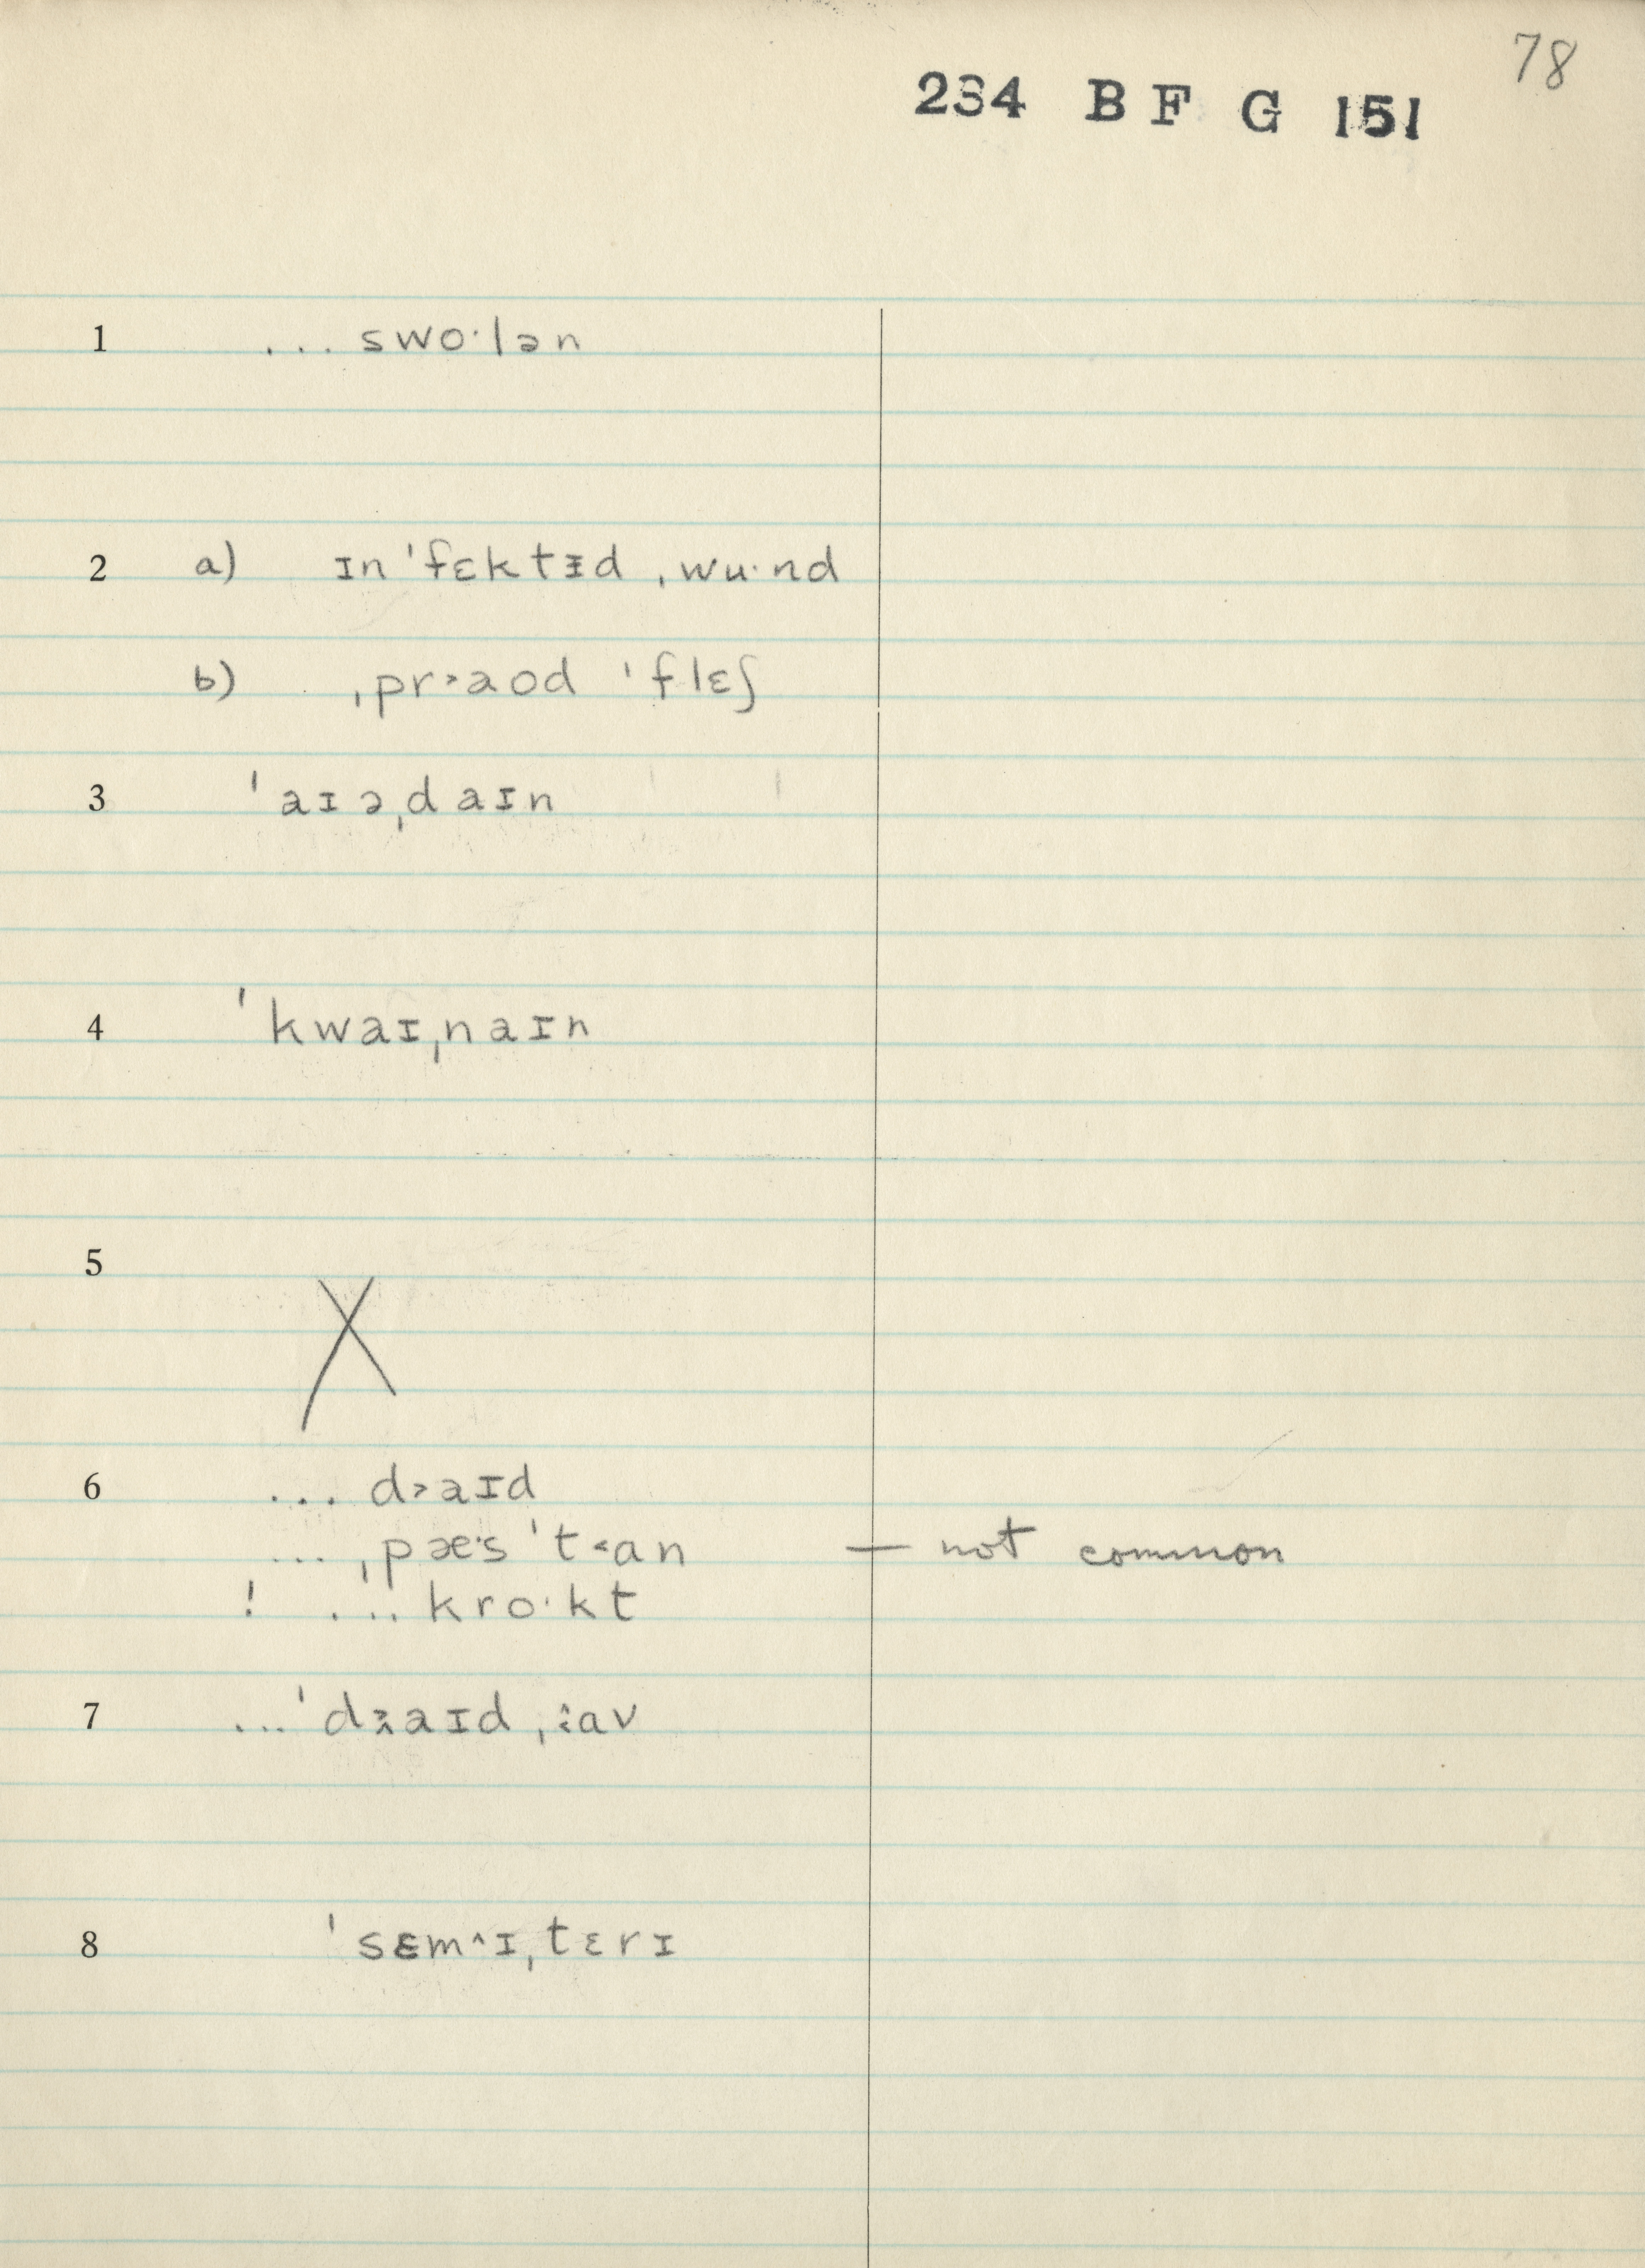 78
234 B F G 151
1 ... swo·lən
2 a) ɪn ˈfɛktɪ̵d ˌwu·nd
b) ˌpr˃aod ˈflɛʃ
3 ˈaɪəˌdaɪn
4 ˈkwaɪˌnaɪn
5 X
6 ... d˃aɪd
... ˌpæ·s ˈt˂an — not common
! ... kro·kt
7 ... ˈaɪd
8 ˈsɛm^ɪˌtɛrɪ